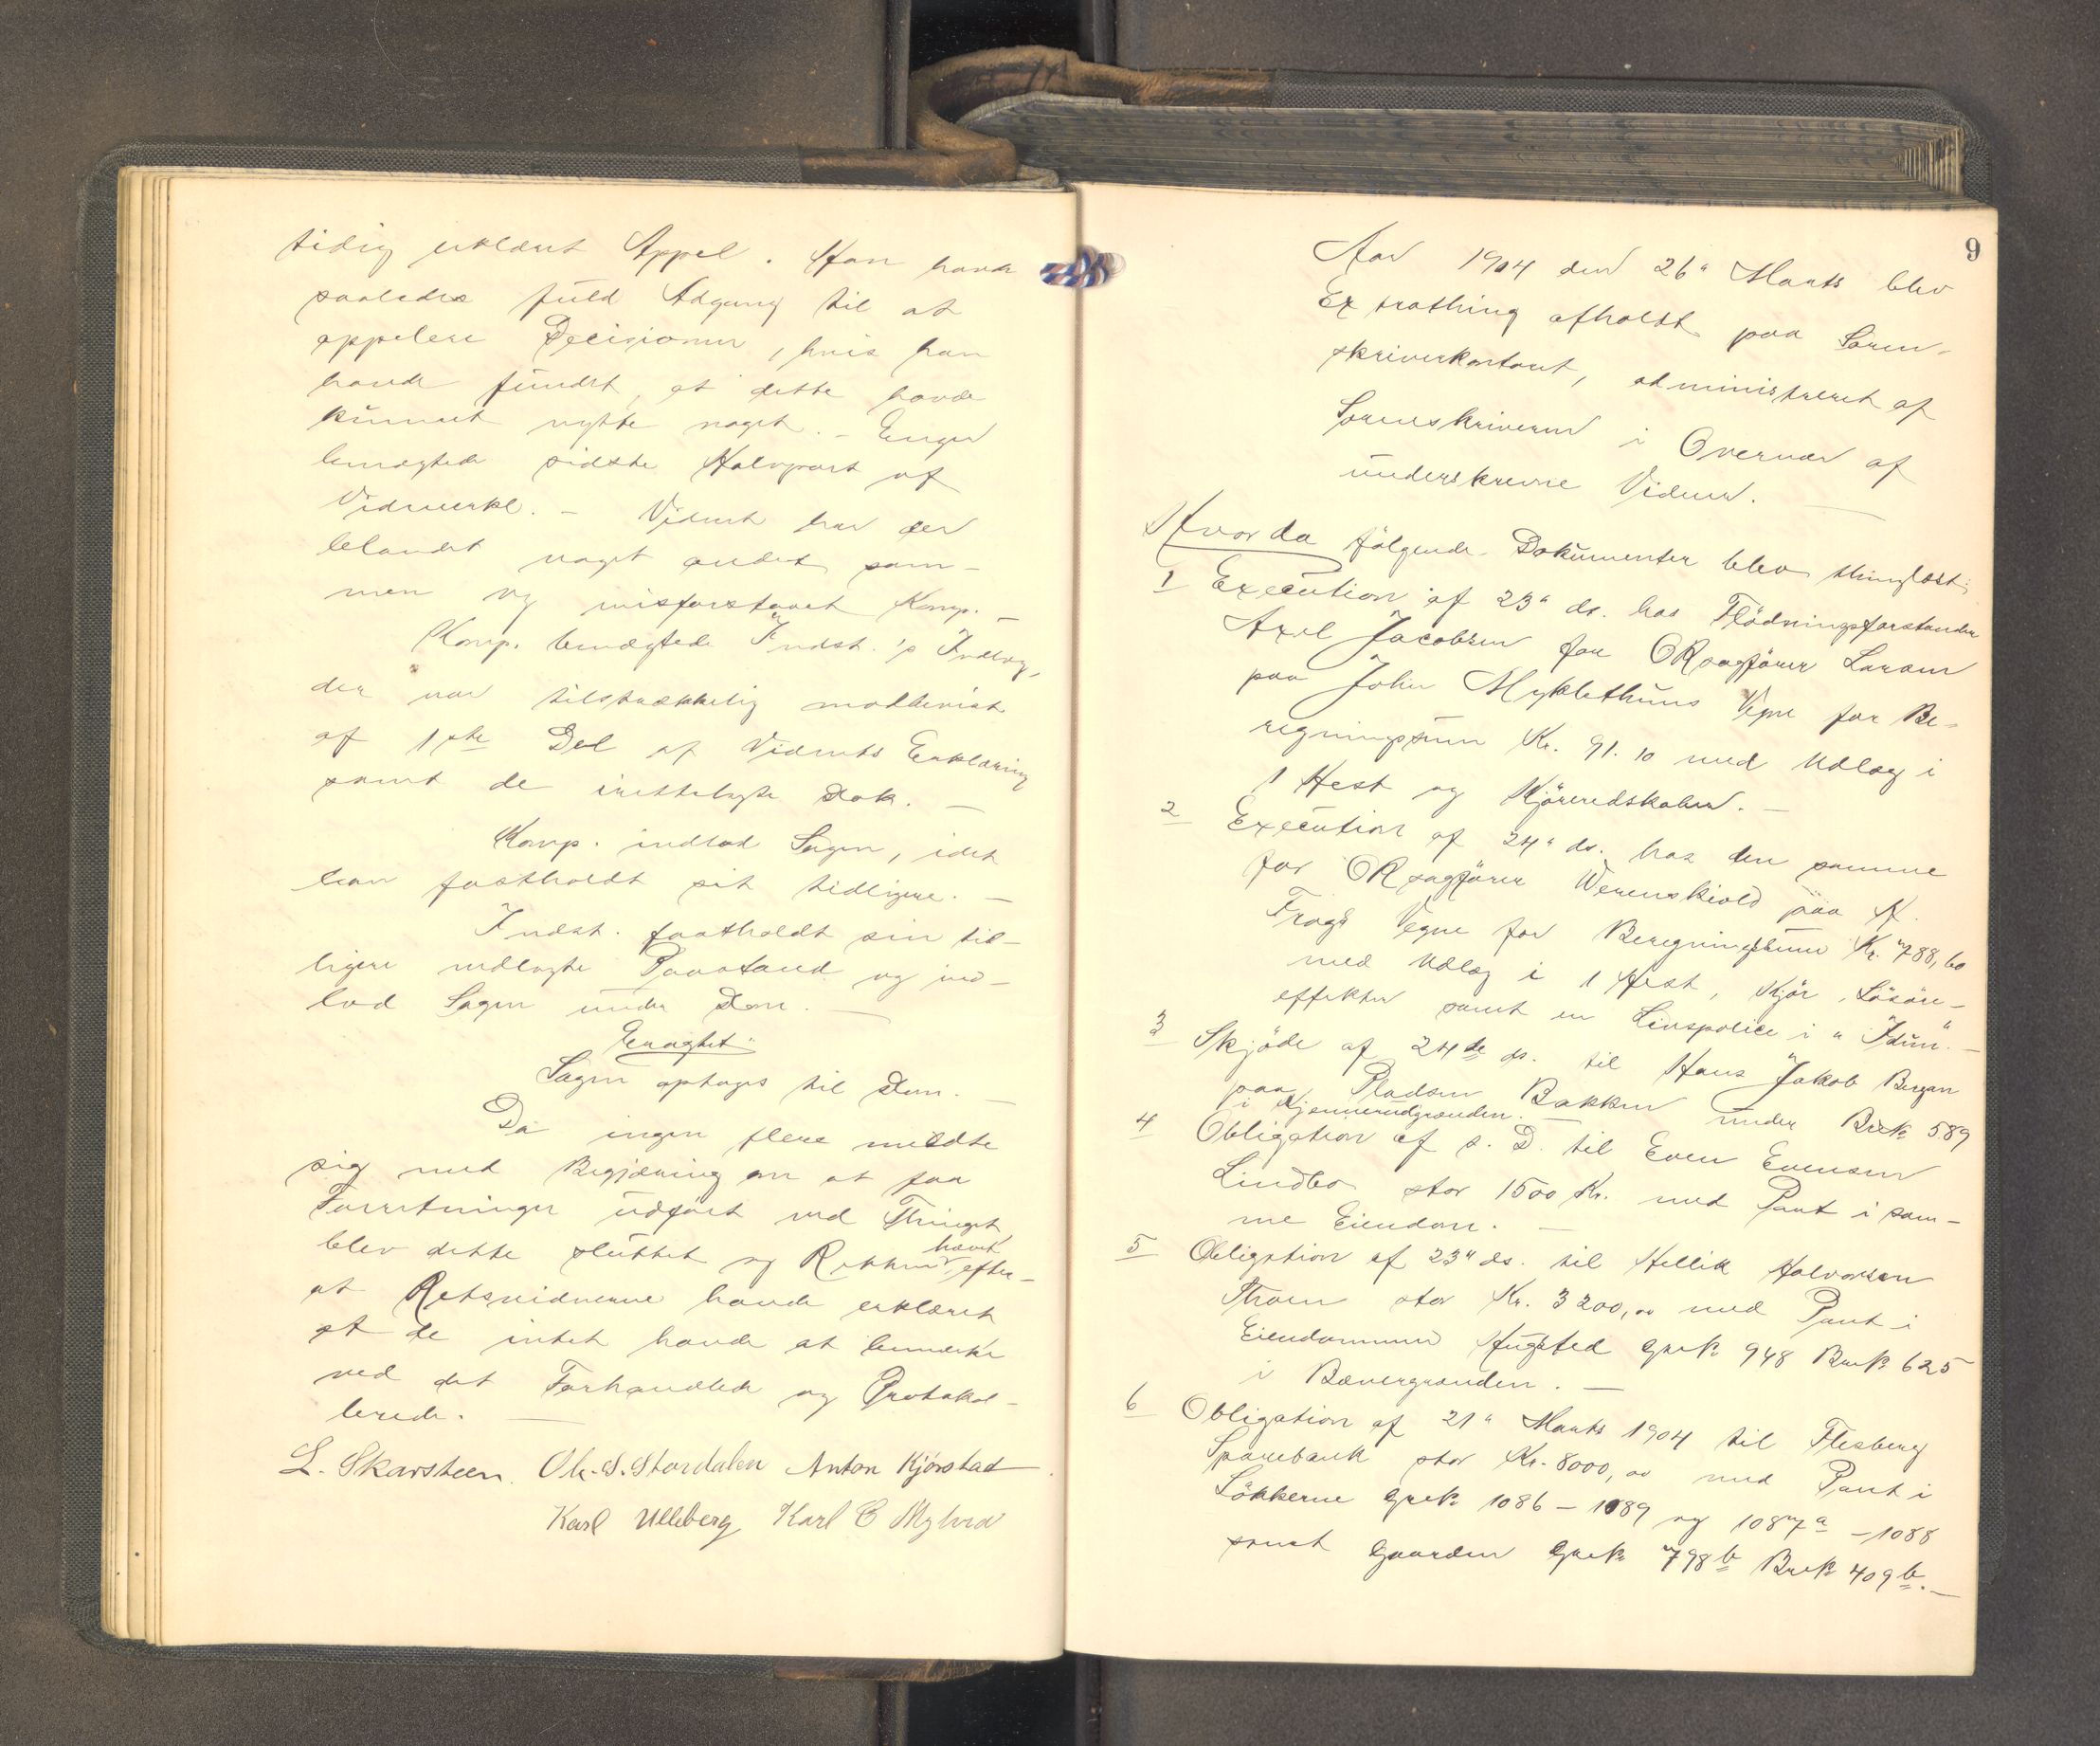 tidig erklært Appel. Han havde
saaledes fuld Adgang til at
appelere Decisionen, hvis han
havde fundet, at dette havde
kunnet nytte noget. – Enger
benægtede sidste Halvpart af
Vidneerkl. – Vidnet har der
blandet noget andet sam-
men og misforstaaet Komp. –
Komp. benægtede Indst.'s Indlæg,
der var tilstrækkelig modbevist
af 1ste Del af Vidnets Erklæring
samt de irettelagte Dok. –
Komp. indlod Sagen, idet
han fastholdt sit tidligere. –
Indst. fastholdt sin tid-
ligere nedlagte Paastand og ind-
lod Sagen under Dom. –
Eragtet:
Sagen optages til Dom. –
Da ingen flere meldte
sig med Begjæring om at faa
Forretninger udført ved Thinget,
blev dette sluttet og Retten hævet efter-
at Retsvidnerne havde erklæret
at de intet havde at bemærke
ved det Forhandlede og Protokol-
lerede. –
L. Skarsteen. Ole. S. Stordalen Anton Kjørstad
Karl Ulleberg Karl C Myhra
9
Aar 1904 den 26" Marts blev
Extrathing afholdt paa Soren-
skriverkontoret, administreret af
Sorenskriveren i Overvær af
underskrevne Vidner. –
Hvor da følgende Dokumenter blev thinglæst:
1 Execution af 23" ds. hos Flødningsforstander
Axel Jacobsen for ORsagfører Larsen
paa John Myklethuns Vegne for Be-
regningssum Kr. 91.10 med Udlæg i
1 Hest og Kjøreredskaber. –
2 Execution af 24" ds. hos den samme
for ORsagfører Werenskiold paa A.
Frogs Vegne for Beregningssum Kr. 788,60
med Udlæg i 1 Hest, Kjør, Løsøre-
effekter samt en Livspolice i "Idun". –
3 Skjøde af 24de ds. til Hans Jakob Bergan
paa Pladsen Bakken under Brk. 589
i Hjennerudgrænden. –
4 Obligation af s. D. til Even Evensen
Lindbo stor 1500 Kr. med Pant i sam-
me Eiendom. –
5 Obligation af 23" ds. til Hellik Halvorsen
Moen stor Kr. 3200,00 med Pant i
Eiendommen Hugsted Grk. 948 Brk. 625
i Bævergrænden. –
6 Obligation af 21" Marts 1904 til Flesberg
Sparebank stor Kr. 8000,00 med Pant i
Løkkerne Grk. 1086 – 1089 og 1087a – 1088
samt Gaarden Grk. 798b Brk 409b. –